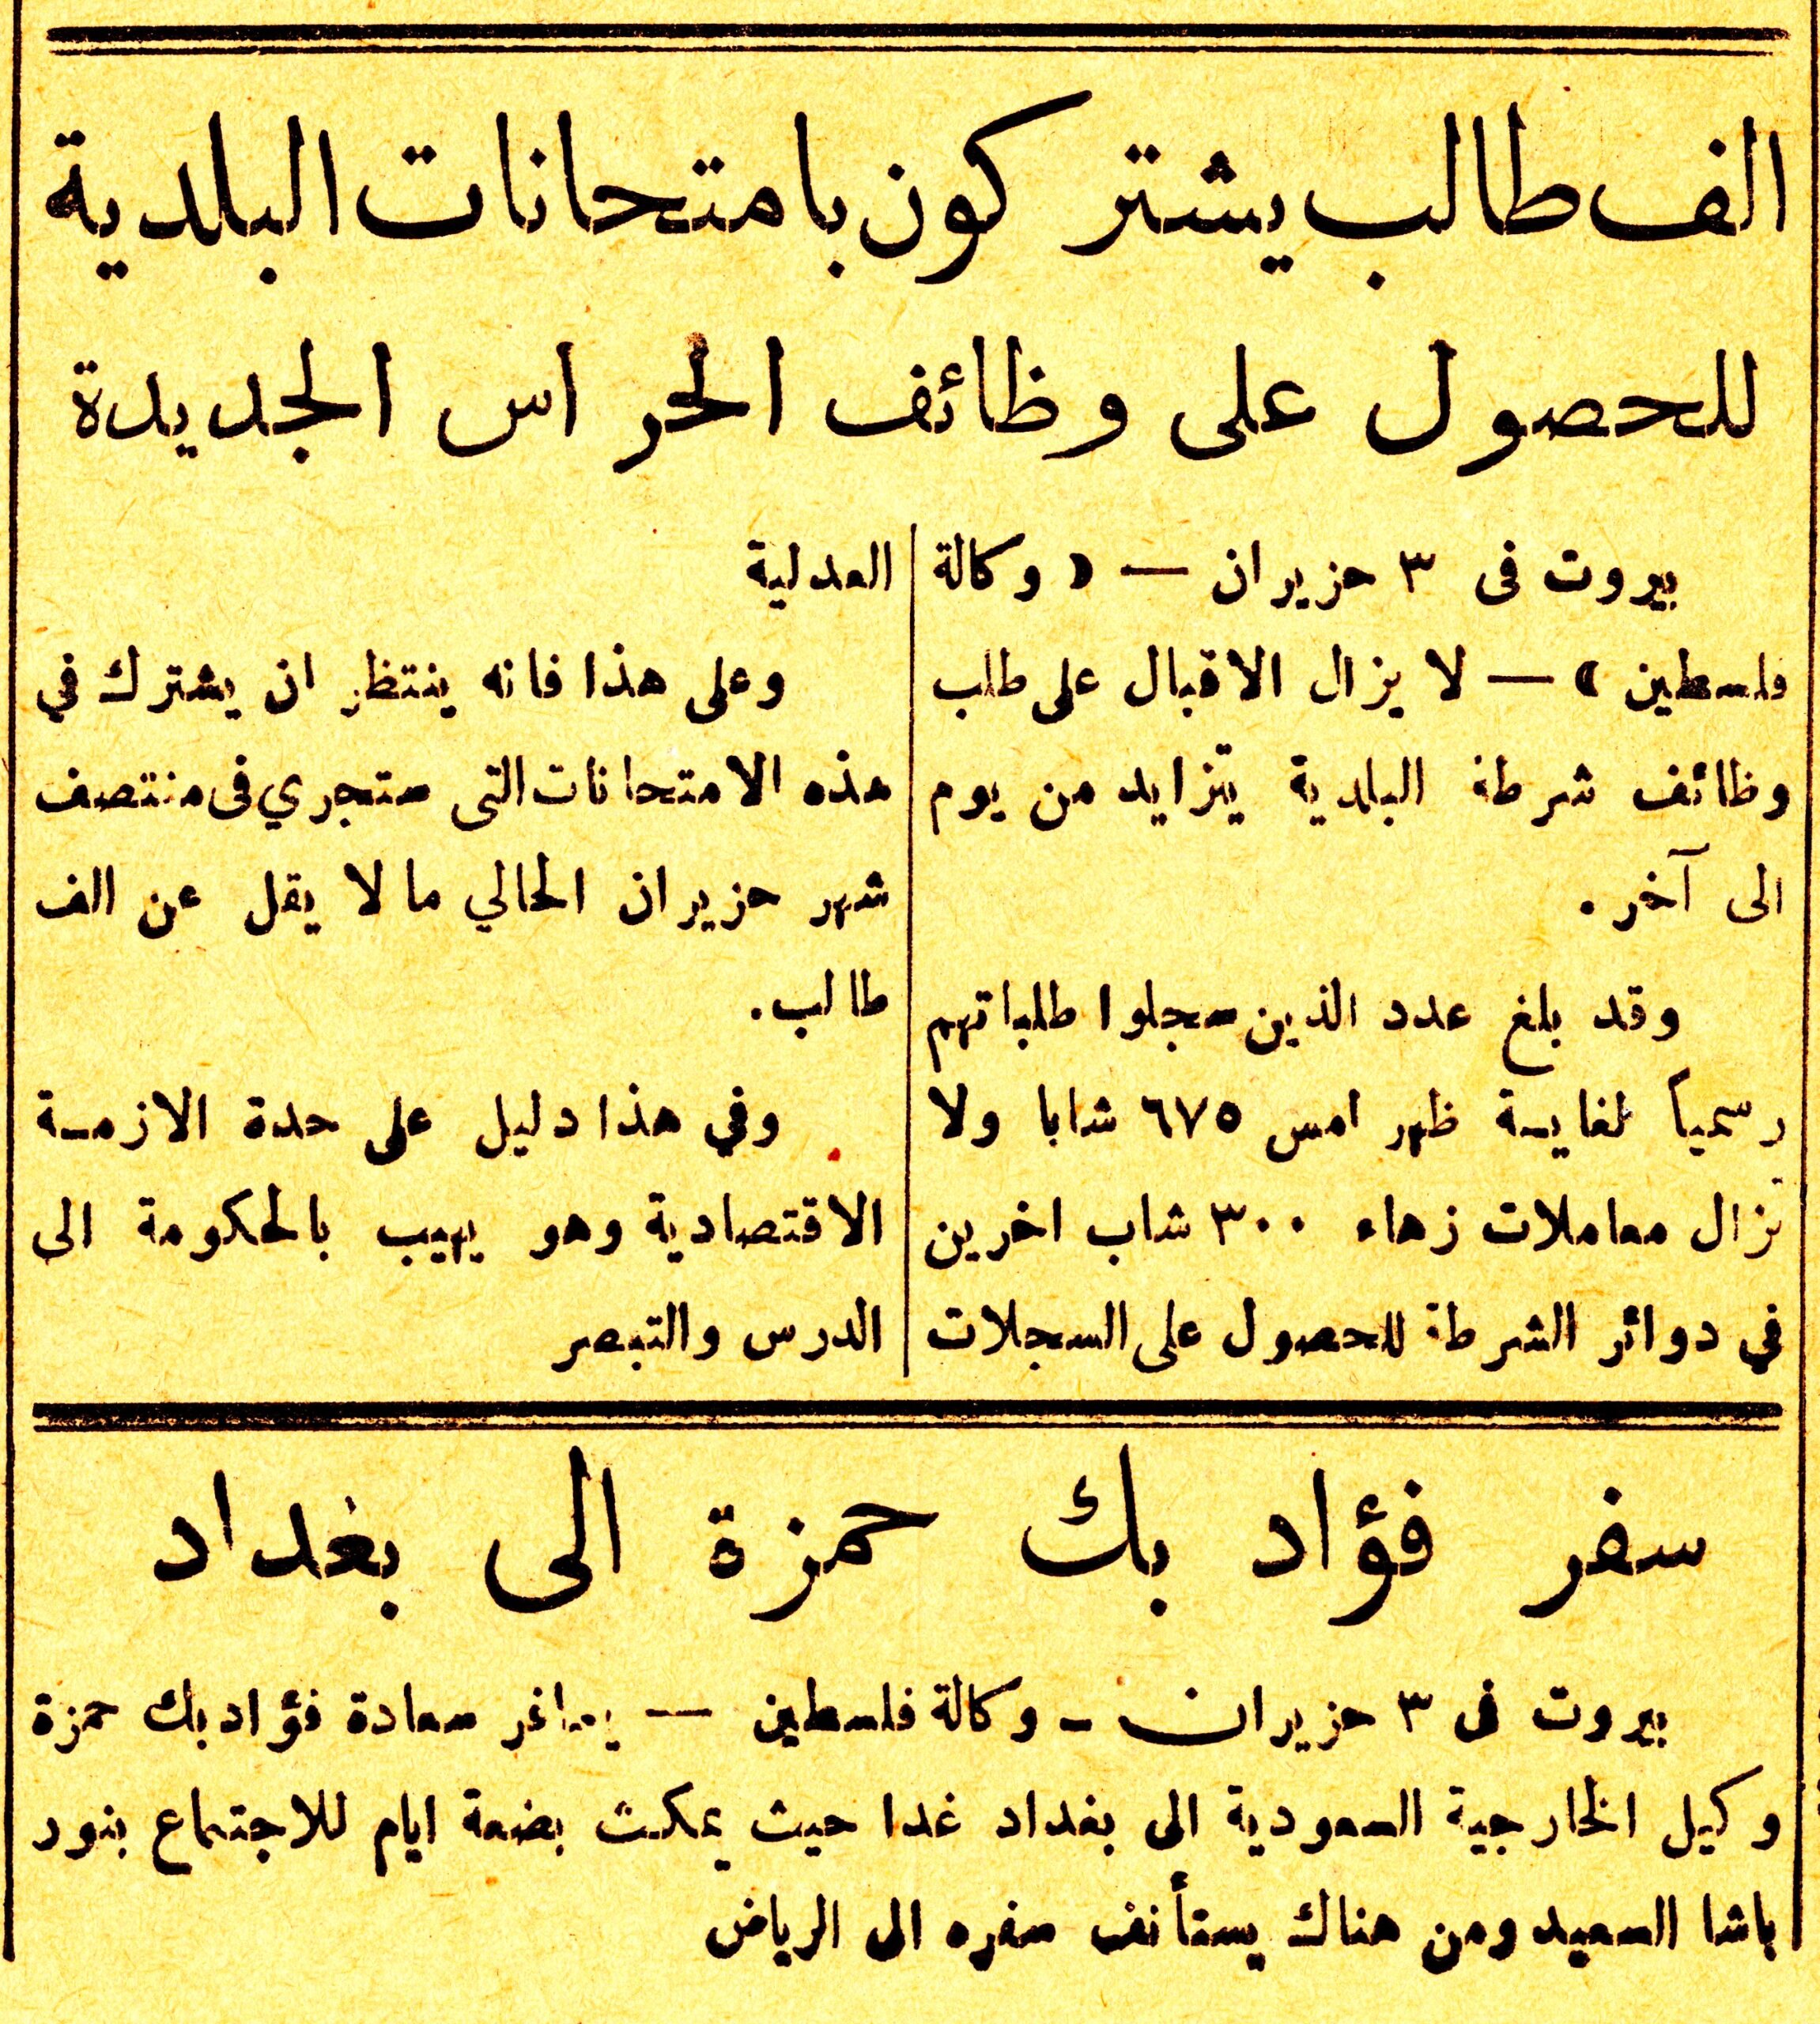 الف طالب يشتركون بامتحانات البلدية
للحصول على وظائف الحراس الجديدة
بيروت فى ٣ حزيران — « وكالة
فلسطين » — لا يزال الاقبال على طلب
وظائف شرطة البلدية يتزايد من يوم
الى آخر .
وقد بلغ عدد الذين سجلوا طلباتهم
رسمياً لغاية ظهر امس ٦٧٥ شابا ولا
تزال معاملات زهاء ٣٠٠ شاب اخرين
في دوائر الشرطة للحصول على السجلات
العدلية
وعلى هذا فانه ينتظر ان يشترك في
هذه الامتحانات التى ستجري فى منتصف
شهر حزيران الحالي ما لا يقل عن الف
طالب .
وفي هذا دليل على حدة الازمة
الاقتصادية وهو يهيب بالحكومة الى
الدرس والتبصر
سفر فؤاد بك حمزة الى بغداد
بيروت فى ٣ حزيران - وكالة فلسطين — يساغر سعادة فؤاد بك حمزة
وكيل الخارجية السعودية الى بغداد غدا حيث يمكث بضعة ايام للاجتماع بنور
باشا السعيد ومن هناك يستأنف سفره الى الرياض